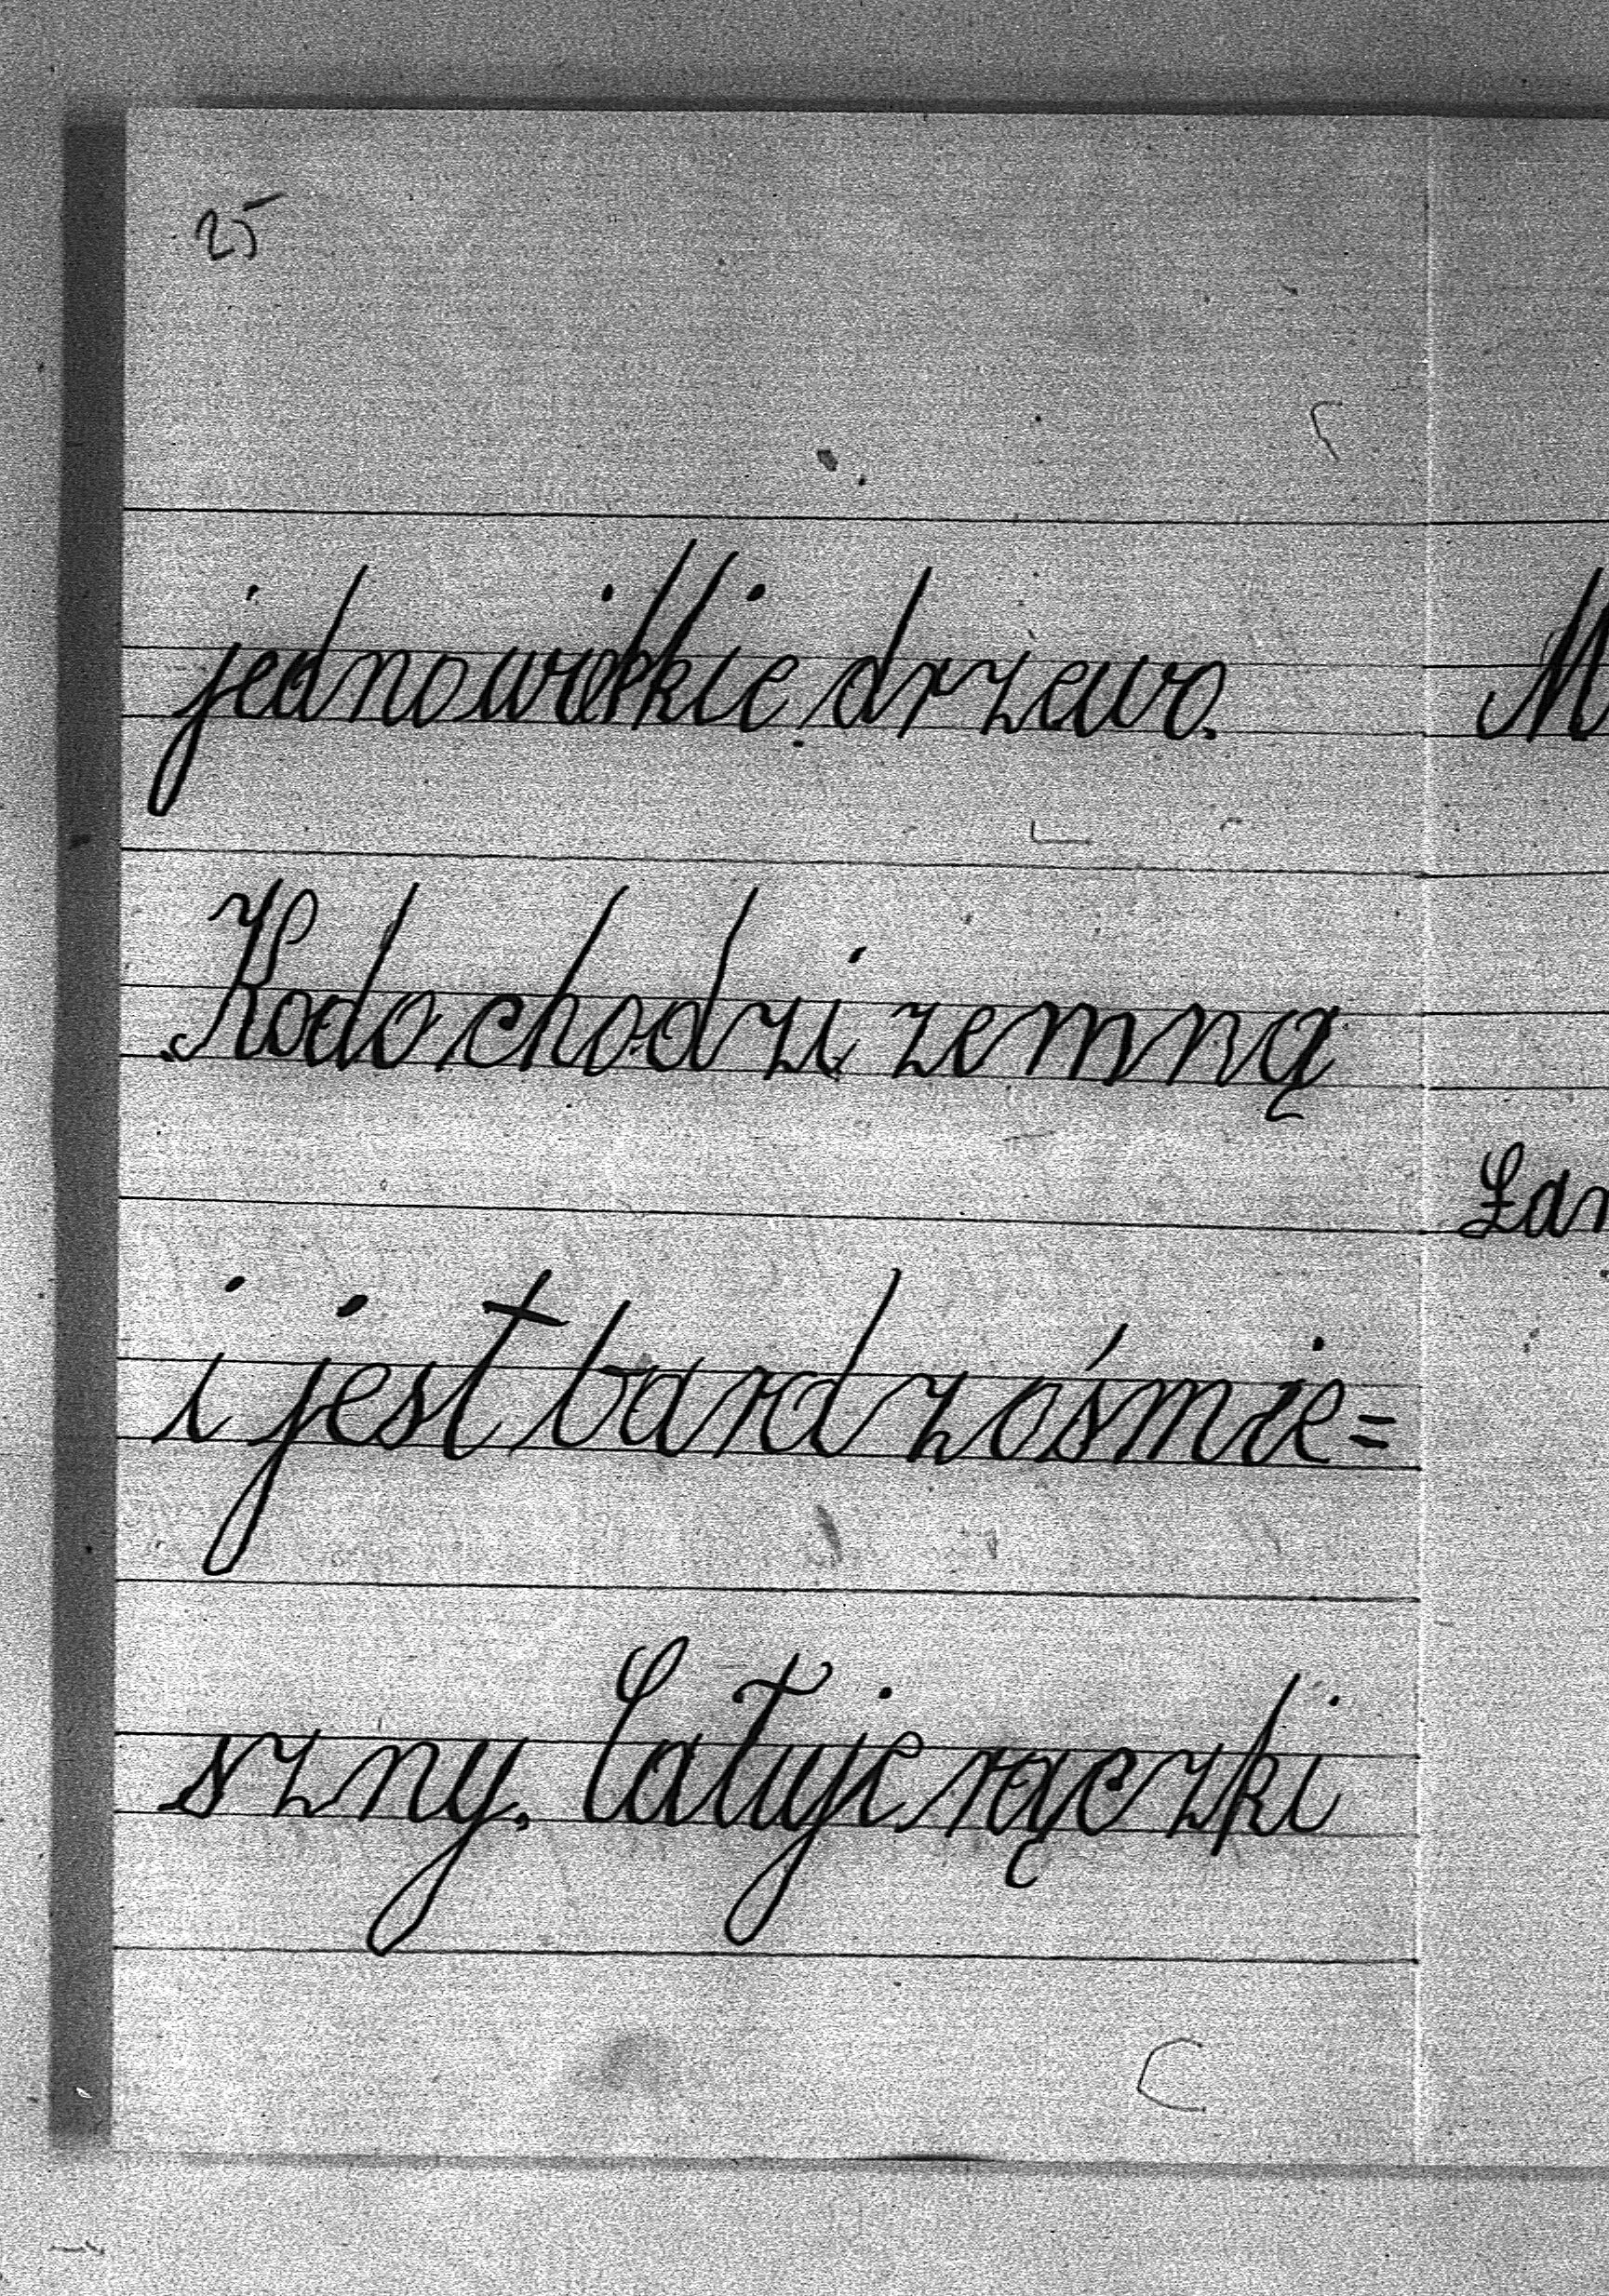 25
jedno wielkie drzewo.
Kodo chodzi zemną
i jest bardzo śmie=
szny. Całuję rączki